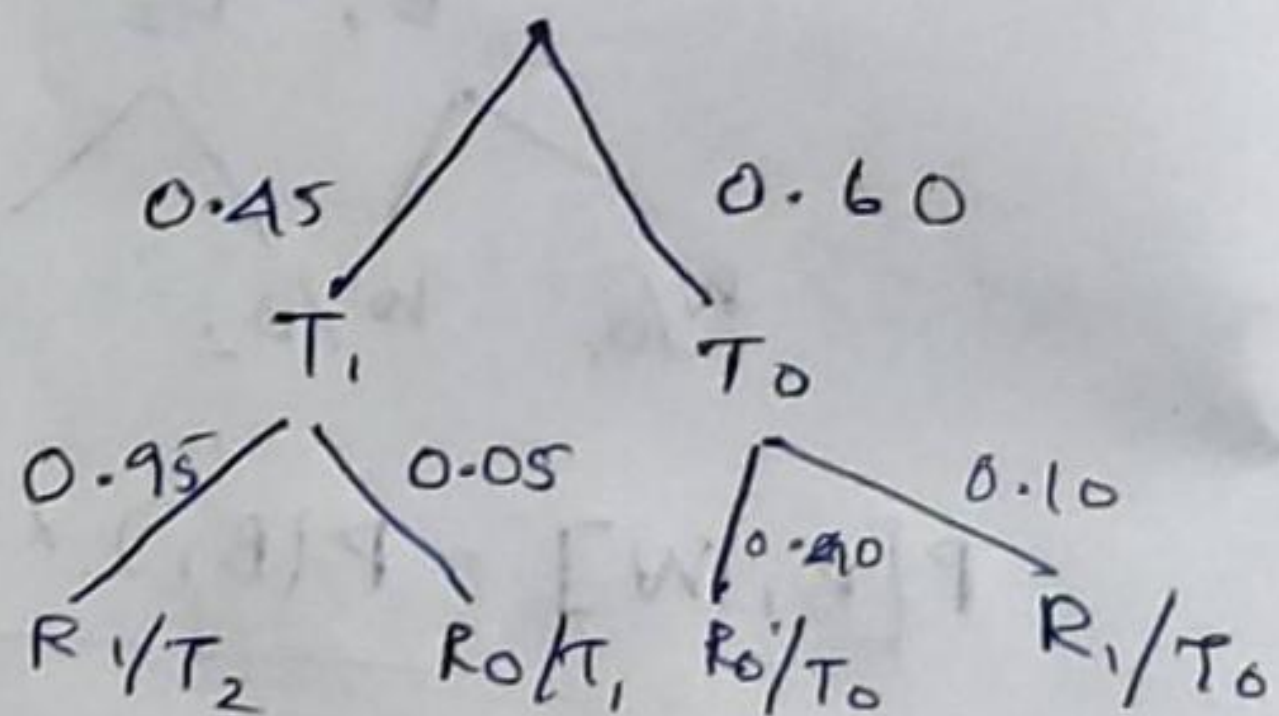 0.45 0.60
T₁ T₀
0.95 0.05 0.10
R₁/T₂ R₀/T₁ R₀/T₀ R₁/T₀